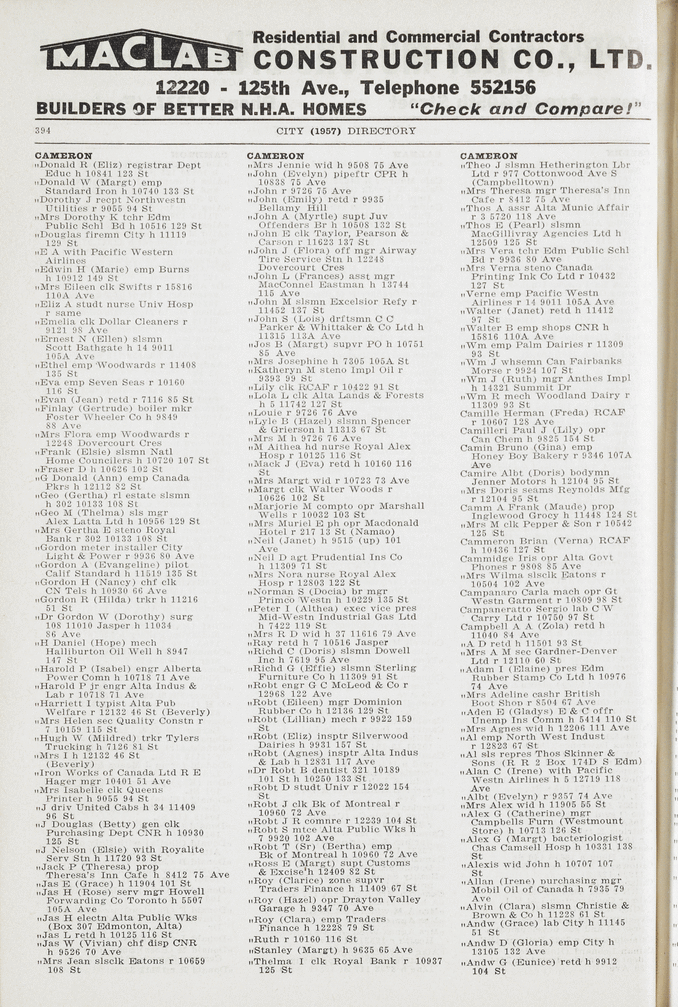 MACLAB
Residential and Commercial Contractors
CONSTRUCTION CO., LTD.
12220 - 125th Ave., Telephone 552156
BUILDERS OF BETTER N.H.A. HOMES "Check and Compare!"
394
CITY (1957) DIRECTORY
CAMERON
„Donald R (Eliz) registrar Dept
Educ h 10841 123 St
„Donald W (Margt) emp
Standard Iron h 10740 133 St
„Dorothy J recpt Northwestn
Utilities r 9055 94 St
„Mrs Dorothy K tchr Edm
Public Schl Bd h 10516 129 St
„Douglas firemn City h 11119
129 St
„E A with Pacific Western
Airlines
„Edwin H (Marie) emp Burns
h 10912 149 St
„Mrs Eileen clk Swifts r 15816
110A Ave
„Eliz A studt nurse Univ Hosp
r same
„Emelia clk Dollar Cleaners r
9121 98 Ave
„Ernest N (Ellen) slsmn
Scott Bathgate h 14 9011
105A Ave
„Ethel emp Woodwards r 11408
135 St
„Eva emp Seven Seas r 10160
116 St
„Evan (Jean) retd r 7116 85 St
„Finlay (Gertrude) boiler mkr
Foster Wheeler Co h 9849
88 Ave
„Mrs Flora emp Woodwards r
12248 Dovercourt Cres
„Frank (Elsie) slsmn Natl
Home Councilers h 10720 107 St
„Fraser D h 10626 102 St
„G Donald (Ann) emp Canada
Pkrs h 12112 82 St
„Geo (Gertha) rl estate slsmn
h 302 10133 108 St
„Geo M (Thelma) sls mgr
Alex Latta Ltd h 10956 129 St
„Mrs Gertha E steno Royal
Bank r 302 10133 108 St
„Gordon meter installer City
Light & Power r 9936 80 Ave
„Gordon A (Evangeline) pilot
Calif Standard h 11519 135 St
„Gordon H (Nancy) chf clk
CN Tels h 10930 66 Ave
„Gordon R (Hilda) trkr h 11216
51 St
„Dr Gordon W (Dorothy) surg
108 11010 Jasper h 11034
86 Ave
„H Daniel (Hope) mech
Halliburton Oil Well h 8947
147 St
„Harold P (Isabel) engr Alberta
Power Comn h 10718 71 Ave
„Harold P jr engr Alta Indus &
Lab r 10718 71 Ave
„Harriett I typist Alta Pub
Welfare r 12132 46 St (Beverly)
„Mrs Helen sec Quality Constn r
7 10159 115 St
„Hugh W (Mildred) trkr Tylers
Trucking h 7126 81 St
„Mrs I h 12132 46 St
(Beverly)
„Iron Works of Canada Ltd R E
Hager mgr 10401 51 Ave
„Mrs Isabelle clk Queens
Printer h 9055 94 St
„J driv United Cabs h 34 11409
96 St
„J Douglas (Betty) gen clk
Purchasing Dept CNR h 10930
125 St
„J Nelson (Elsie) with Royalite
Serv Stn h 11720 93 St
„Jack P (Theresa) prop
Theresa's Inn Cafe h 8412 75 Ave
„Jas E (Grace) h 11904 101 St
„Jas H (Rose) serv mgr Howell
Forwarding Co Toronto h 5507
105A Ave
„Jas H electn Alta Public Wks
(Box 307 Edmonton, Alta)
„Jas L retd h 10125 116 St
„Jas W (Vivian) chf disp CNR
h 9526 70 Ave
„Mrs Jean slsclk Eatons r 10659
108 St
CAMERON
„Mrs Jennie wid h 9508 75 Ave
„John (Evelyn) pipeftr CPR h
10838 75 Ave
„John r 9726 75 Ave
„John (Emily) retd r 9935
Bellamy Hill
„John A (Myrtle) supt Juv
Offenders Br h 10508 132 St
„John E clk Taylor, Pearson &
Carson r 11623 137 St
„John J (Flora) off mgr Airway
Tire Service Stn h 12248
Dovercourt Cres
„John L (Frances) asst mgr
MacConnel Eastman h 13744
115 Ave
„John M slsmn Excelsior Refy r
11452 137 St
„John S (Lois) drftsmn C C
Parker & Whittaker & Co Ltd h
11315 113A Ave
„Jos B (Margt) supvr PO h 10751
85 Ave
„Mrs Josephine h 7305 105A St
„Katheryn M steno Impl Oil r
9393 99 St
„Lily clk RCAF r 10422 91 St
„Lola L clk Alta Lands & Forests
h 5 11742 127 St
„Louie r 9726 76 Ave
„Lyle B (Hazel) slsmn Spencer
& Grierson h 11313 67 St
„Mrs M h 9726 76 Ave
„M Althea hd nurse Royal Alex
Hosp r 10125 116 St
„Mack J (Eva) retd h 10160 116
St
„Mrs Margt wid r 10723 73 Ave
„Margt clk Walter Woods r
10626 102 St
„Marjorie M compto opr Marshall
Wells r 10032 103 St
„Mrs Muriel E ph opr Macdonald
Hotel r 217 13 St (Namao)
„Neil (Janet) h 9515 (up) 101
Ave
„Neil D agt Prudential Ins Co
h 11309 71 St
„Mrs Nora nurse Royal Alex
Hosp r 12803 122 St
„Norman S (Docia) br mgr
Primco Westn h 10229 135 St
„Peter I (Althea) exec vice pres
Mid-Westn Industrial Gas Ltd
h 7422 119 St
„Mrs R D wid h 37 11616 79 Ave
„Ray retd h 7 10516 Jasper
„Richd C (Doris) slsmn Dowell
Inc h 7619 95 Ave
„Richd G (Effie) slsmn Sterling
Furniture Co h 11309 91 St
„Robt engr G C McLeod & Co r
12968 122 Ave
„Robt (Eileen) mgr Dominion
Rubber Co h 12136 129 St
„Robt (Lillian) mech r 9922 159
St
„Robt (Eliz) insptr Silverwood
Dairies h 9931 157 St
„Robt (Agnes) insptr Alta Indus
& Lab h 12831 117 Ave
„Dr Robt B dentist 321 10189
101 St h 10250 133 St
„Robt D studt Univ r 12022 154
St
„Robt J clk Bk of Montreal r
10960 72 Ave
„Robt J R comnr r 12239 104 St
„Robt S mtce Alta Public Wks h
7 9920 102 Ave
„Robt T (Sr) (Bertha) emp
Bk of Montreal h 10960 72 Ave
„Ross E (Margt) supt Customs
& Excise h 12409 82 St
„Roy (Clarice) zone supvr
Traders Finance h 11409 67 St
„Roy (Hazel) opr Drayton Valley
Garage h 9347 70 Ave
„Roy (Clara) emp Traders
Finance h 12228 79 St
„Ruth r 10160 116 St
„Stanley (Margt) h 9635 65 Ave
„Thelma I clk Royal Bank r 10937
125 St
CAMERON
„Theo J slsmn Hetherington Lbr
Ltd r 977 Cottonwood Ave S
(Campbelltown)
„Mrs Theresa mgr Theresa's Inn
Cafe r 8412 75 Ave
„Thos A assr Alta Munic Affair
r 3 5720 118 Ave
„Thos E (Pearl) slsmn
MacGillivray Agencies Ltd h
12509 125 St
„Mrs Vera tchr Edm Public Schl
Bd r 9936 80 Ave
„Mrs Verna steno Canada
Printing Ink Co Ltd r 10432
127 St
„Verne emp Pacific Westn
Airlines r 14 9011 105A Ave
„Walter (Janet) retd h 11412
97 St
„Walter B emp shops CNR h
15816 110A Ave
„Wm emp Palm Dairies r 11309
93 St
„Wm J whsemn Can Fairbanks
Morse r 9924 107 St
„Wm J (Ruth) mgr Anthes Impl
h 14321 Summit Dr
„Wm R mech Woodland Dairy r
11309 93 St
Camille Herman (Freda) RCAF
r 10607 128 Ave
Camilleri Paul J (Lily) opr
Can Chem h 9825 154 St
Camin Bruno (Gina) emp
Honey Boy Bakery r 9346 107A
Ave
Camire Albt (Doris) bodymn
Jenner Motors h 12104 95 St
„Mrs Doris seams Reynolds Mfg
r 12104 95 St
Camm A Frank (Maude) prop
Inglewood Grocy h 11448 124 St
„Mrs M clk Pepper & Son r 10542
125 St
Cammeron Brian (Verna) RCAF
h 10436 127 St
Cammidge Iris opr Alta Govt
Phones r 9808 85 Ave
„Mrs Wilma slsclk Eatons r
10504 102 Ave
Campanaro Carla mach opr Gt
Westn Garment r 10809 98 St
Campaneratto Sergio lab C W
Carry Ltd r 10750 97 St
Campbell A A (Zola) retd h
11040 84 Ave
„A D retd h 11501 93 St
„Mrs A M sec Gardner-Denver
Ltd r 12110 60 St
„Adam I (Elaine) pres Edm
Rubber Stamp Co Ltd h 10976
74 Ave
„Mrs Adeline cashr British
Boot Shop r 8504 67 Ave
„Aden E (Gladys) E & C offr
Unemp Ins Comm h 5414 110 St
„Mrs Agnes wid h 12206 111 Ave
„Al emp North West Indust
r 12823 67 St
„Al sls repres Thos Skinner &
Sons (R R 2 Box 174D S Edm)
„Alan C (Irene) with Pacific
Westn Airlines h 5 12719 118
Ave
„Albt (Evelyn) r 9357 74 Ave
„Mrs Alex wid h 11905 55 St
„Alex G (Catherine) mgr
Campbells Furn (Westmount
Store) h 10713 126 St
„Alex G (Margt) bacteriologist
Chas Camsell Hosp h 10331 138
St
„Alexis wid John h 10707 107
St
„Allan (Irene) purchasing mgr
Mobil Oil of Canada h 7935 79
Ave
„Alvin (Clara) slsmn Christie &
Brown & Co h 11228 61 St
„Andw (Grace) lab City h 11145
51 St
„Andw D (Gloria) emp City h
13105 132 Ave
„Andw G (Eunice) retd h 9912
104 St